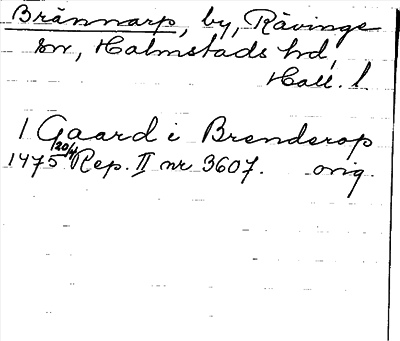 Brännarp, by, Rävinge
sn, Halmstads hd,
Hall. l.
1 Gaard i Brenderop
1475 20/4 Rep. II nr 3607. orig.